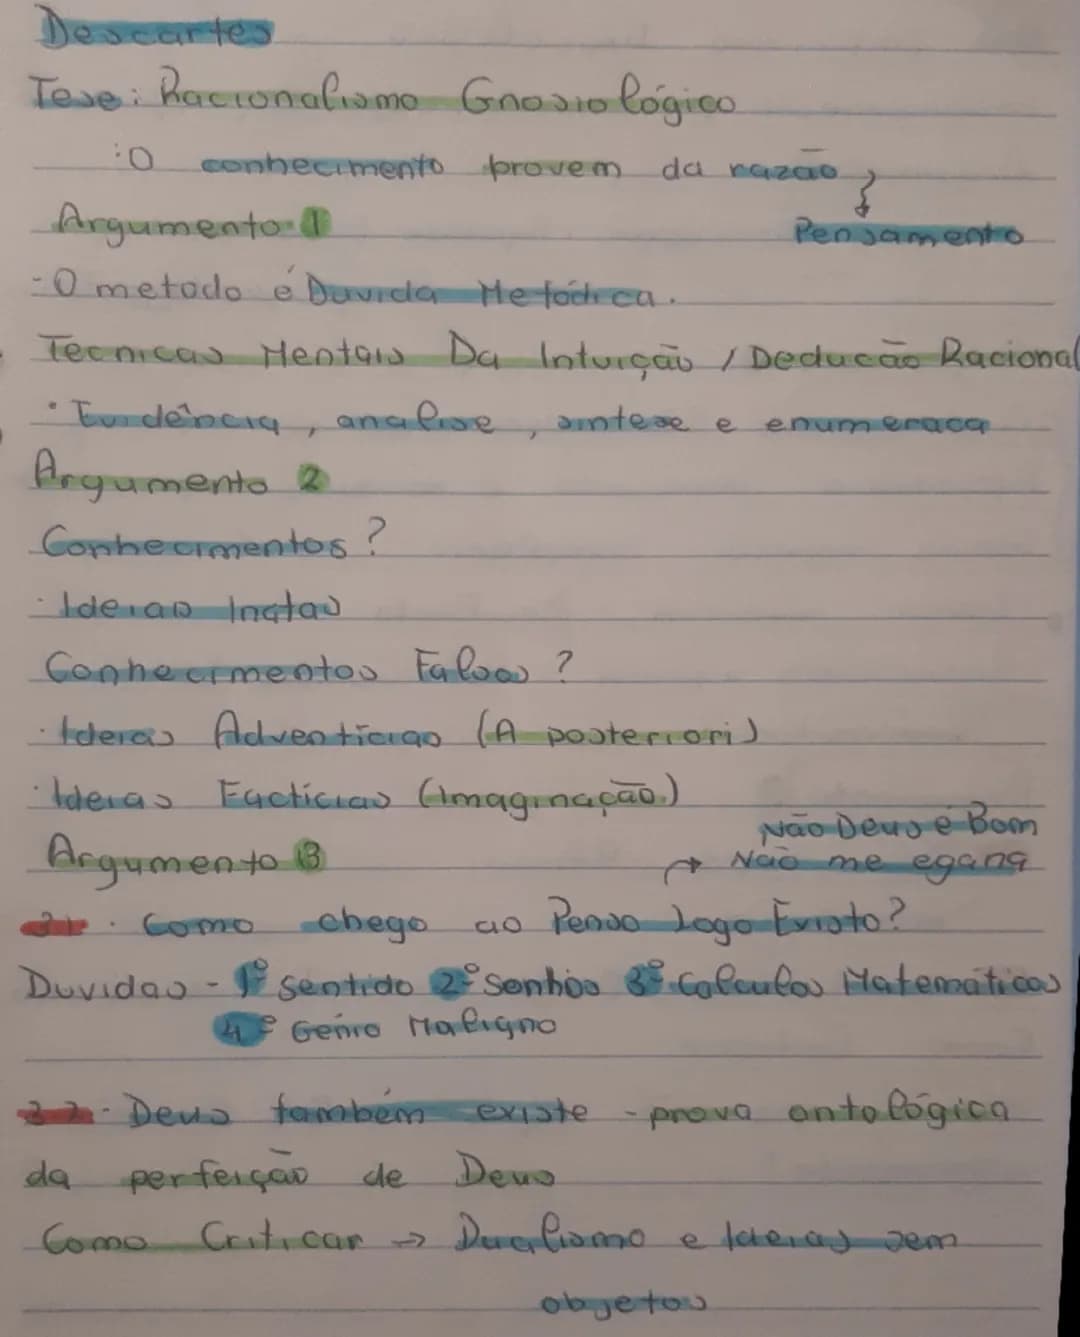 Descartes
Tese: Racionalismo Gnosiológico
:O conhecimento provem da razão
Argumento 1
Pensamento
- O metodo é Duvida Metódica.
Tecnicas Mentais Da Intuição / Deducão Racional
· Evidência, analise, sintese e enumeraca
Argumento 2
Conhecimentos?
· Ideias Inatas
Conhecimentos Falsos?
· Ideias Adventícias (A posteriori)
· Ideias Factícias (Imaginação)
Não Deus é Bom
Argumento 3
→ Não me egana
3.1. Como chego ao Penso Logo Existo?
Duvidas - 1º sentido 2º Sonhos 3º Calculos Matemáticos
4º Genio Maligno
3.2. Deus também existe - prova ontológica
da perfeição de Deus
Como Criticar → Dualismo e Ideias sem
objetos